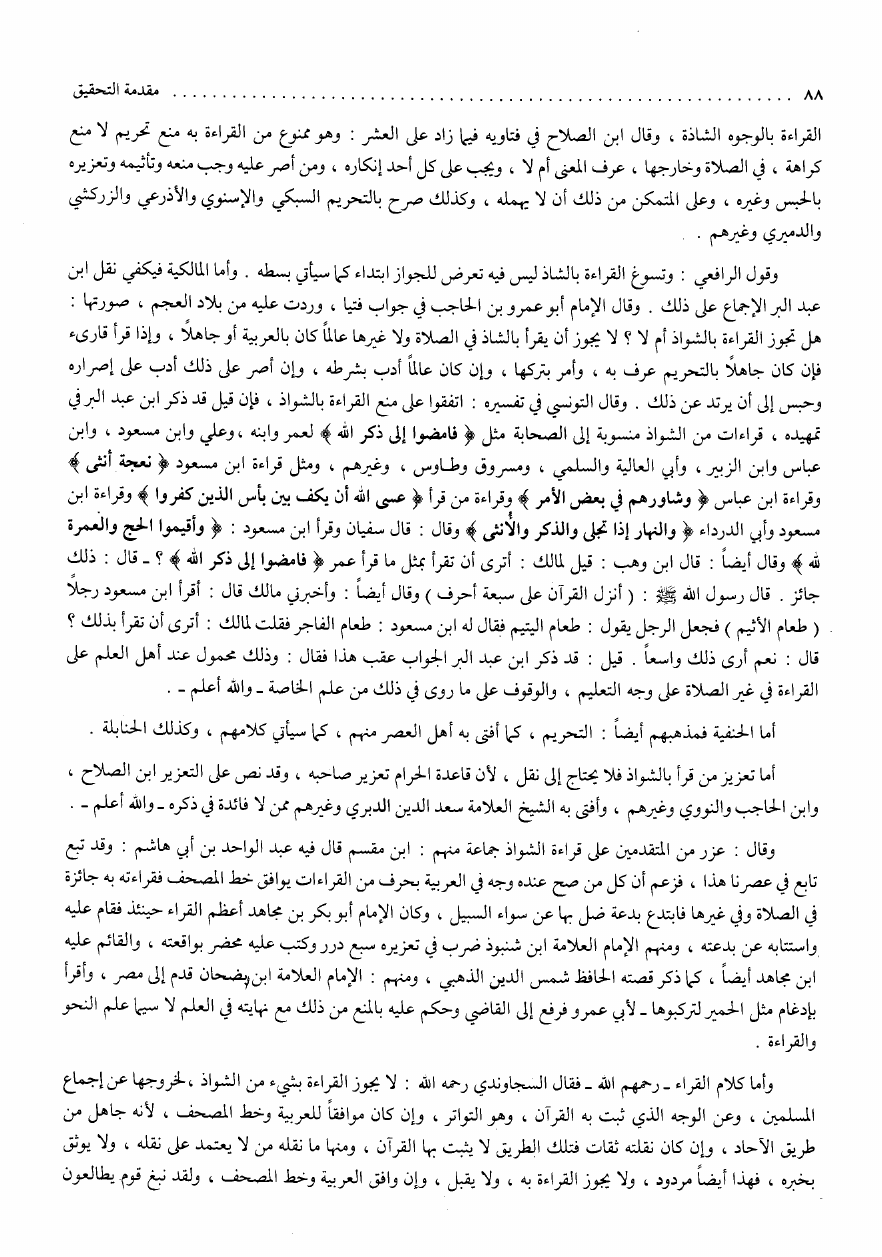 ٨٨ ................................................................ مقدمة التحقيق
القراءة بالوجوه الشاذة ، وقال ابن الصلاح في فتاويه فيما زاد على العشر : وهو ممنوع من القراءة به منع تحريم لا منع
كراهة ، في الصلاة وخارجها ، عرف المعنى أم لا ، ويجب على كل أحد إنكاره ، ومن أصر عليه وجب منعه وتأثيمه وتعزيره
بالحبس وغيره ، وعلى المتمكن من ذلك أن لا يهمله ، وكذلك صرح بالتحريم السبكي والإسنوي والأذرعي والزركشي
والدميري وغيرهم .
وقول الرافعي : وتسوغ القراءة بالشاذ ليس فيه تعرض للجواز ابتداء كما سيأتي بسطه . وأما المالكية فيكفي نقل ابن
عبد البر الإجماع على ذلك . وقال الإمام أبو عمرو بن الحاجب في جواب فتيا ، وردت عليه من بلاد العجم ، صورتها :
هل تجوز القراءة بالشواذ أم لا ؟ لا يجوز أن يقرأ بالشاذ في الصلاة ولا غيرها عالماً كان بالعربية أو جاهلاً ، وإذا قرأ قارىء
فإن كان جاهلاً بالتحريم عرف به ، وأمر بتركها ، وإن كان عالماً أدب بشرطه ، وإن أصر على ذلك أدب على إصراره
وحبس إلى أن يرتد عن ذلك . وقال التونسي في تفسيره : اتفقوا على منع القراءة بالشواذ ، فإن قيل قد ذكر ابن عبد البر في
تمهيده ، قراءات من الشواذ منسوبة إلى الصحابة مثل ﴿ فامضوا إلى ذكر الله ﴾ لعمر وابنه ، وعلي وابن مسعود ، وابن
عباس وابن الزبير ، وأبي العالية والسلمي ، ومسروق وطاوس ، وغيرهم ، ومثل قراءة ابن مسعود ﴿ نعجة أنثى ﴾
وقراءة ابن عباس ﴿ وشاورهم في بعض الأمر ﴾ وقراءة من قرأ ﴿ عسى الله أن يكف بين بأس الذين كفروا ﴾ وقراءة ابن
مسعود وأبي الدرداء ﴿ والنهار إذا تجلى والذكر والأنثى ﴾ وقال : قال سفيان وقرأ ابن مسعود : ﴿ وأقيموا الحج والعمرة
لله ﴾ وقال أيضاً : قال ابن وهب : قيل لمالك : أترى أن تقرأ بمثل ما قرأ عمر ﴿ فامضوا إلى ذكر الله ﴾ ؟ ـ قال : ذلك
جائز . قال رسول الله ﷺ : ( أنزل القرآن على سبعة أحرف ) وقال أيضاً : وأخبرني مالك قال : أقرأ ابن مسعود رجلاً
( طعام الأثيم ) فجعل الرجل يقول : طعام اليتيم فقال له ابن مسعود : طعام الفاجر فقلت لمالك : أترى أن تقرأ بذلك ؟
قال : نعم أرى ذلك واسعاً . قيل : قد ذكر ابن عبد البر الجواب عقب هذا فقال : وذلك محمول عند أهل العلم على
القراءة في غير الصلاة على وجه التعليم ، والوقوف على ما روى في ذلك من علم الخاصة ـ والله أعلم ـ .
أما الحنفية فمذهبهم أيضاً : التحريم ، كما أفتى به أهل العصر منهم ، كما سيأتي كلامهم ، وكذلك الحنابلة .
أما تعزيز من قرأ بالشواذ فلا يحتاج إلى نقل ، لأن قاعدة الحرام تعزير صاحبه ، وقد نص على التعزير ابن الصلاح ،
وابن الحاجب والنووي وغيرهم ، وأفتى به الشيخ العلامة سعد الدين الدبري وغيرهم ممن لا فائدة في ذكره ـ والله أعلم ـ .
وقال : عزر من المتقدمين على قراءة الشواذ جماعة منهم : ابن مقسم قال فيه عبد الواحد بن أبي هاشم : وقد تبع
تابع في عصرنا هذا ، فزعم أن كل من صح عنده وجه في العربية بحرف من القراءات يوافق خط المصحف فقراءته به جائزة
في الصلاة وفي غيرها فابتدع بدعة ضل بها عن سواء السبيل ، وكان الإمام أبو بكر بن مجاهد أعظم القراء حينئذ فقام عليه
واستتابه عن بدعته ، ومنهم الإمام العلامة ابن شنبوذ ضرب في تعزيره سبع درر وكتب عليه محضر بواقعته ، والقائم عليه
ابن مجاهد أيضاً ، كما ذكر قصته الحافظ شمس الدين الذهبي ، ومنهم : الإمام العلامة ابن بضحان قدم إلى مصر ، وأقرأ
بإدغام مثل الحمير لتركبوها ـ لأبي عمرو فرفع إلى القاضي وحكم عليه بالمنع من ذلك مع نهايته في العلم لا سيما علم النحو
والقراءة .
وأما كلام القراء ـ رحمهم الله ـ فقال السجاوندي رحمه الله : لا يجوز القراءة بشيء من الشواذ ، لخروجها عن إجماع
المسلمين ، وعن الوجه الذي ثبت به القرآن ، وهو التواتر ، وإن كان موافقاً للعربية وخط المصحف ، لأنه جاهل من
طريق الآحاد ، وإن كان نقلته ثقات فتلك الطريق لا يثبت بها القرآن ، ومنها ما نقله من لا يعتمد على نقله ، ولا يوثق
بخبره ، فهذا أيضاً مردود ، ولا يجوز القراءة به ، ولا يقبل ، وإن وافق العربية وخط المصحف ، ولقد نبغ قوم يطالعون